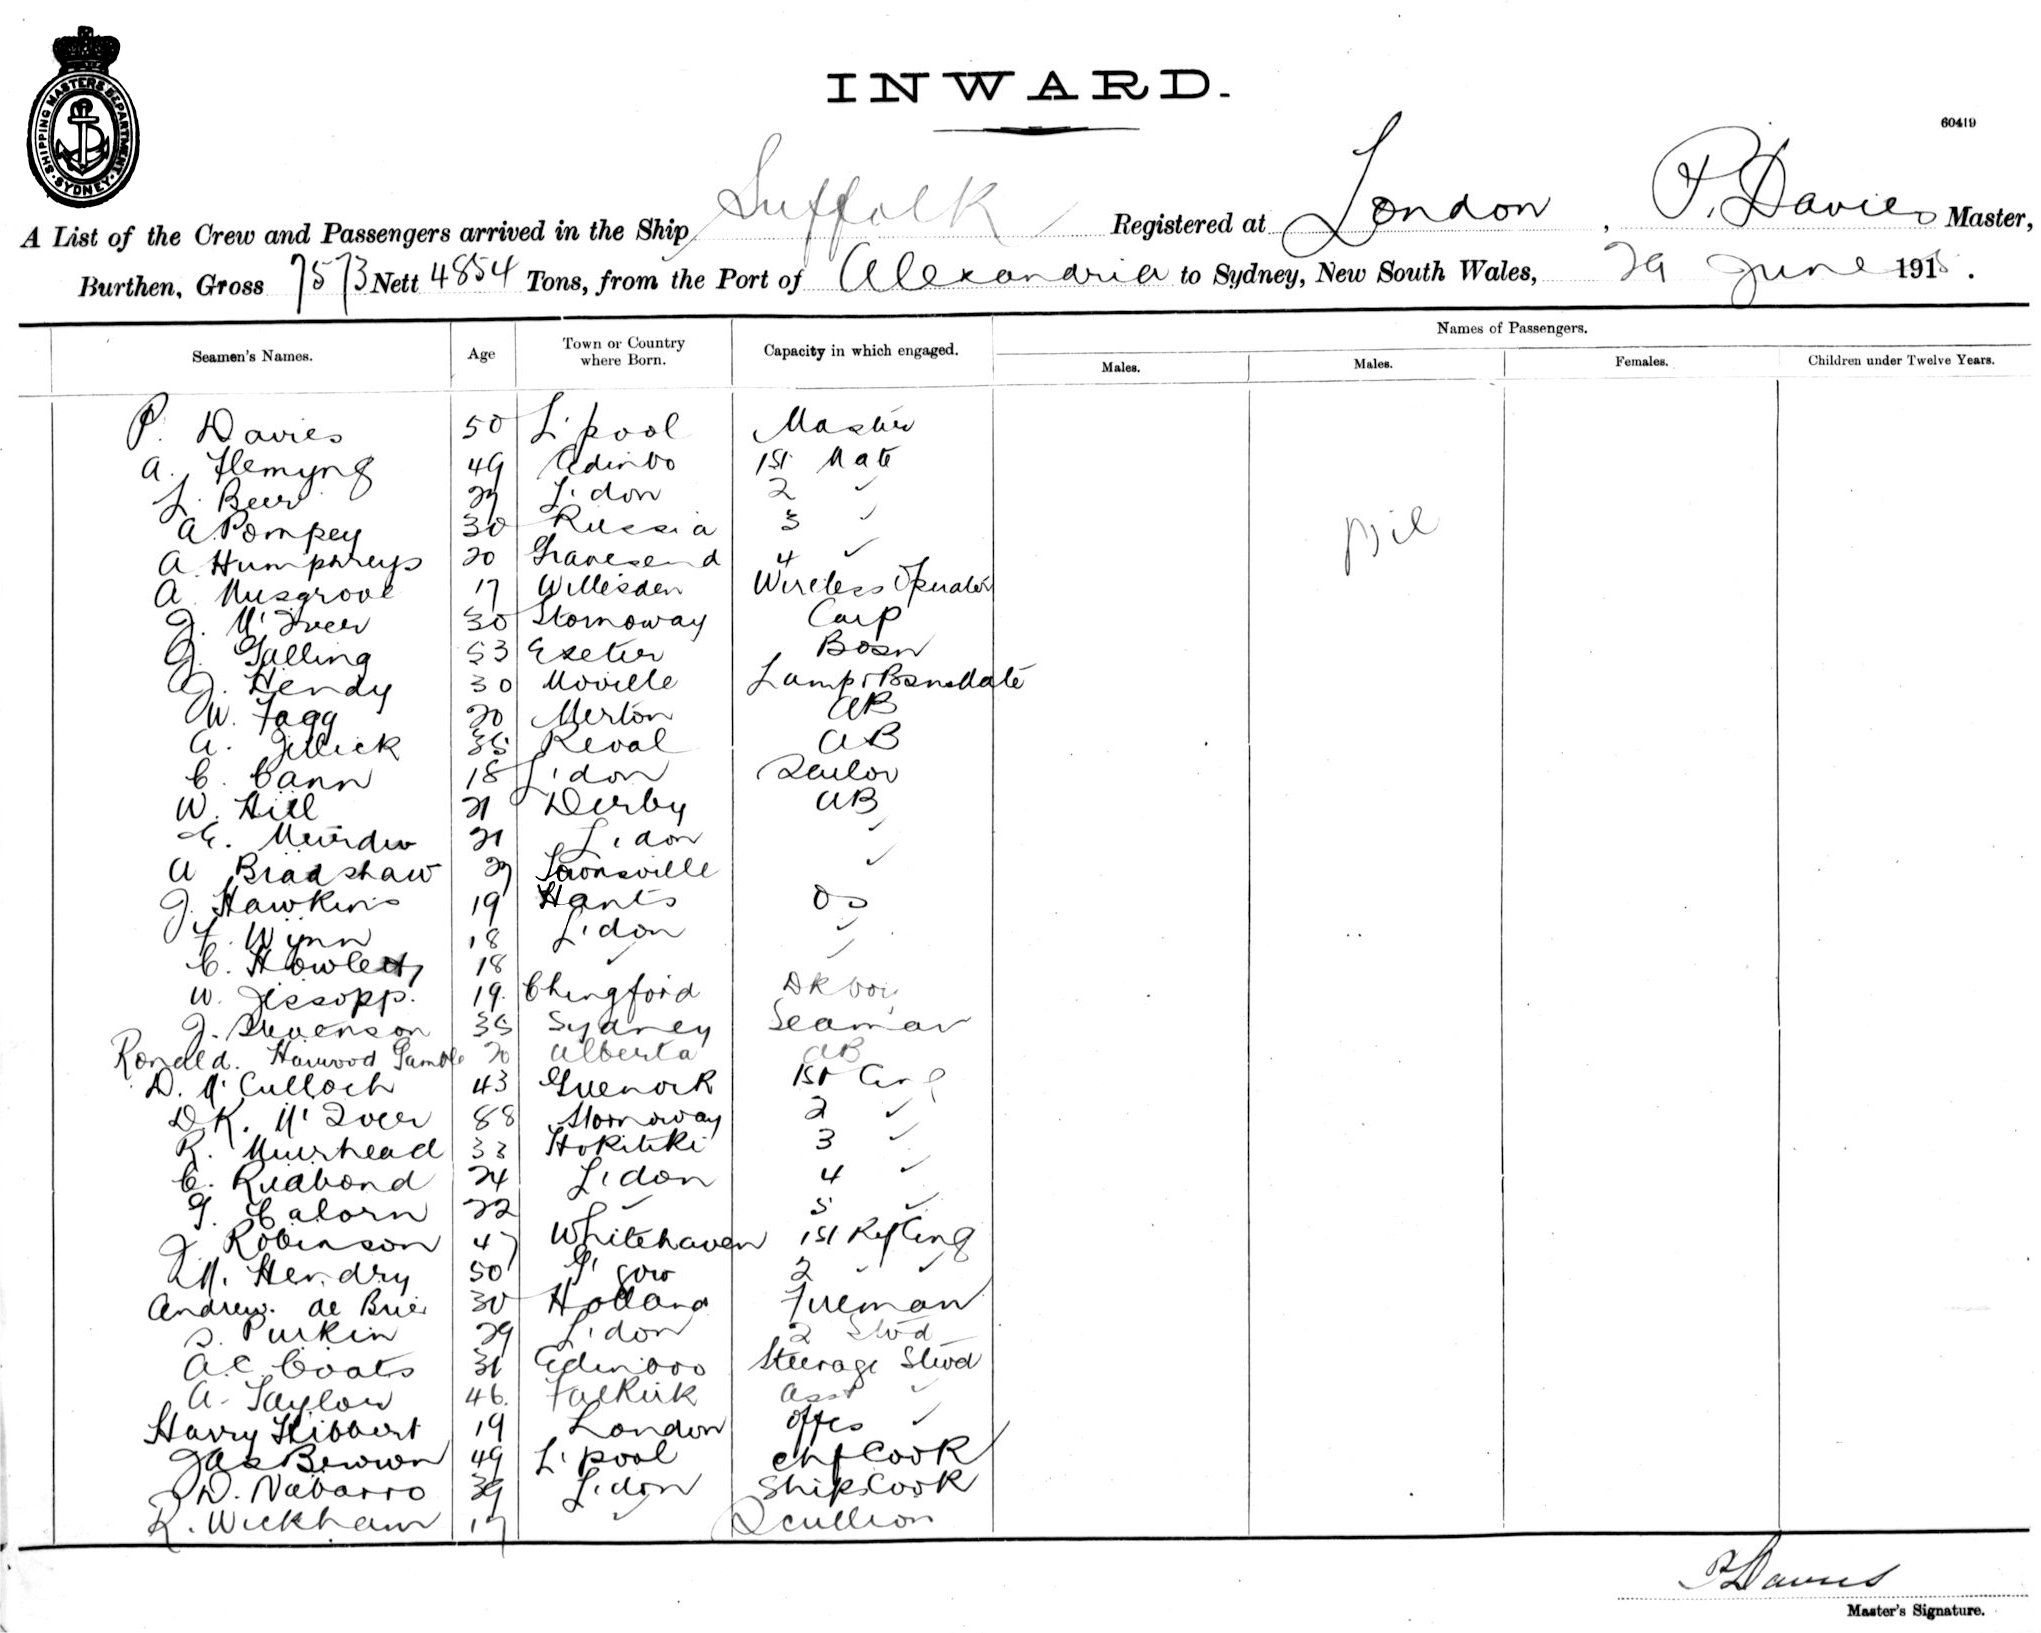 SHIPPING MASTERS DEPARTMENT
SYDNEY
INWARD.
60419
A List of the Crew and Passengers arrived in the Ship Suffolk Registered at London, P. Davies Master,
Burthen, Gross 7573 Nett 4854 Tons, from the Port of Alexandria to Sydney, New South Wales, 29 June 1915.
Names of Passengers.
Seamen's Names. Age Town or Country where Born. Capacity in which engaged. Males. Males. Females. Children under Twelve Years.
P. Davies 50 L'pool Master
A. Flemyng 49 Edinbo 1st Mate
L. Beer 27 L'don 2 "
A Pompey 30 Russia 3 "
Nil
A. Humphreys 20 Gravesend 4 "
A. Musgrove 17 Willesden Wireless Operator
J. McIver 30 Stornoway Carp
G. Galling 53 Exeter Bosn
J. Hendy 30 Moville Lamps Bsns Mate
W. Fagg 20 Merton AB
A. Jellick 35 Reval AB
C. Cann 18 L'don Sailor
W. Hill 21 Derby AB
21 L'don "
A Bradshaw 27 Townsville "
J. Hawkins 19 Hants OS
F. Wynn 18 L'don "
C. Howlett 18 " "
W. Jessopp. 19. Chingford Dk boy
J. Stevenson 35 Sydney Seaman
Ronald. Harwood Gamble 20 Alberta AB
D. McCulloch 43 Greenock 1st Eng
D K. McIver 38 Stornoway 2 "
R. Muirhead 33 Hokitiki 3 "
C. Redbond 24 L'don 4 "
G. Calorn 22 " 5 "
J. Robinson 47 Whitehaven 1st Rf Eng
M. Hendry 50 G'gow 2 " "
Andrew. de Brie 30 Holland Fireman
S. Purkin 29 L'don 2 Stwd
A.C. Coats 31 Edinboro Steerage Stwd
A. Taylor 46. Falkirk Asst "
Harry Hibbert 19 London Offrs "
Jas Brown 49 L'pool Chf Cook
D. Nabarro 39 L'don Ships Cook
R. Wickham 17 " Scullion
P Davies
Master's Signature.